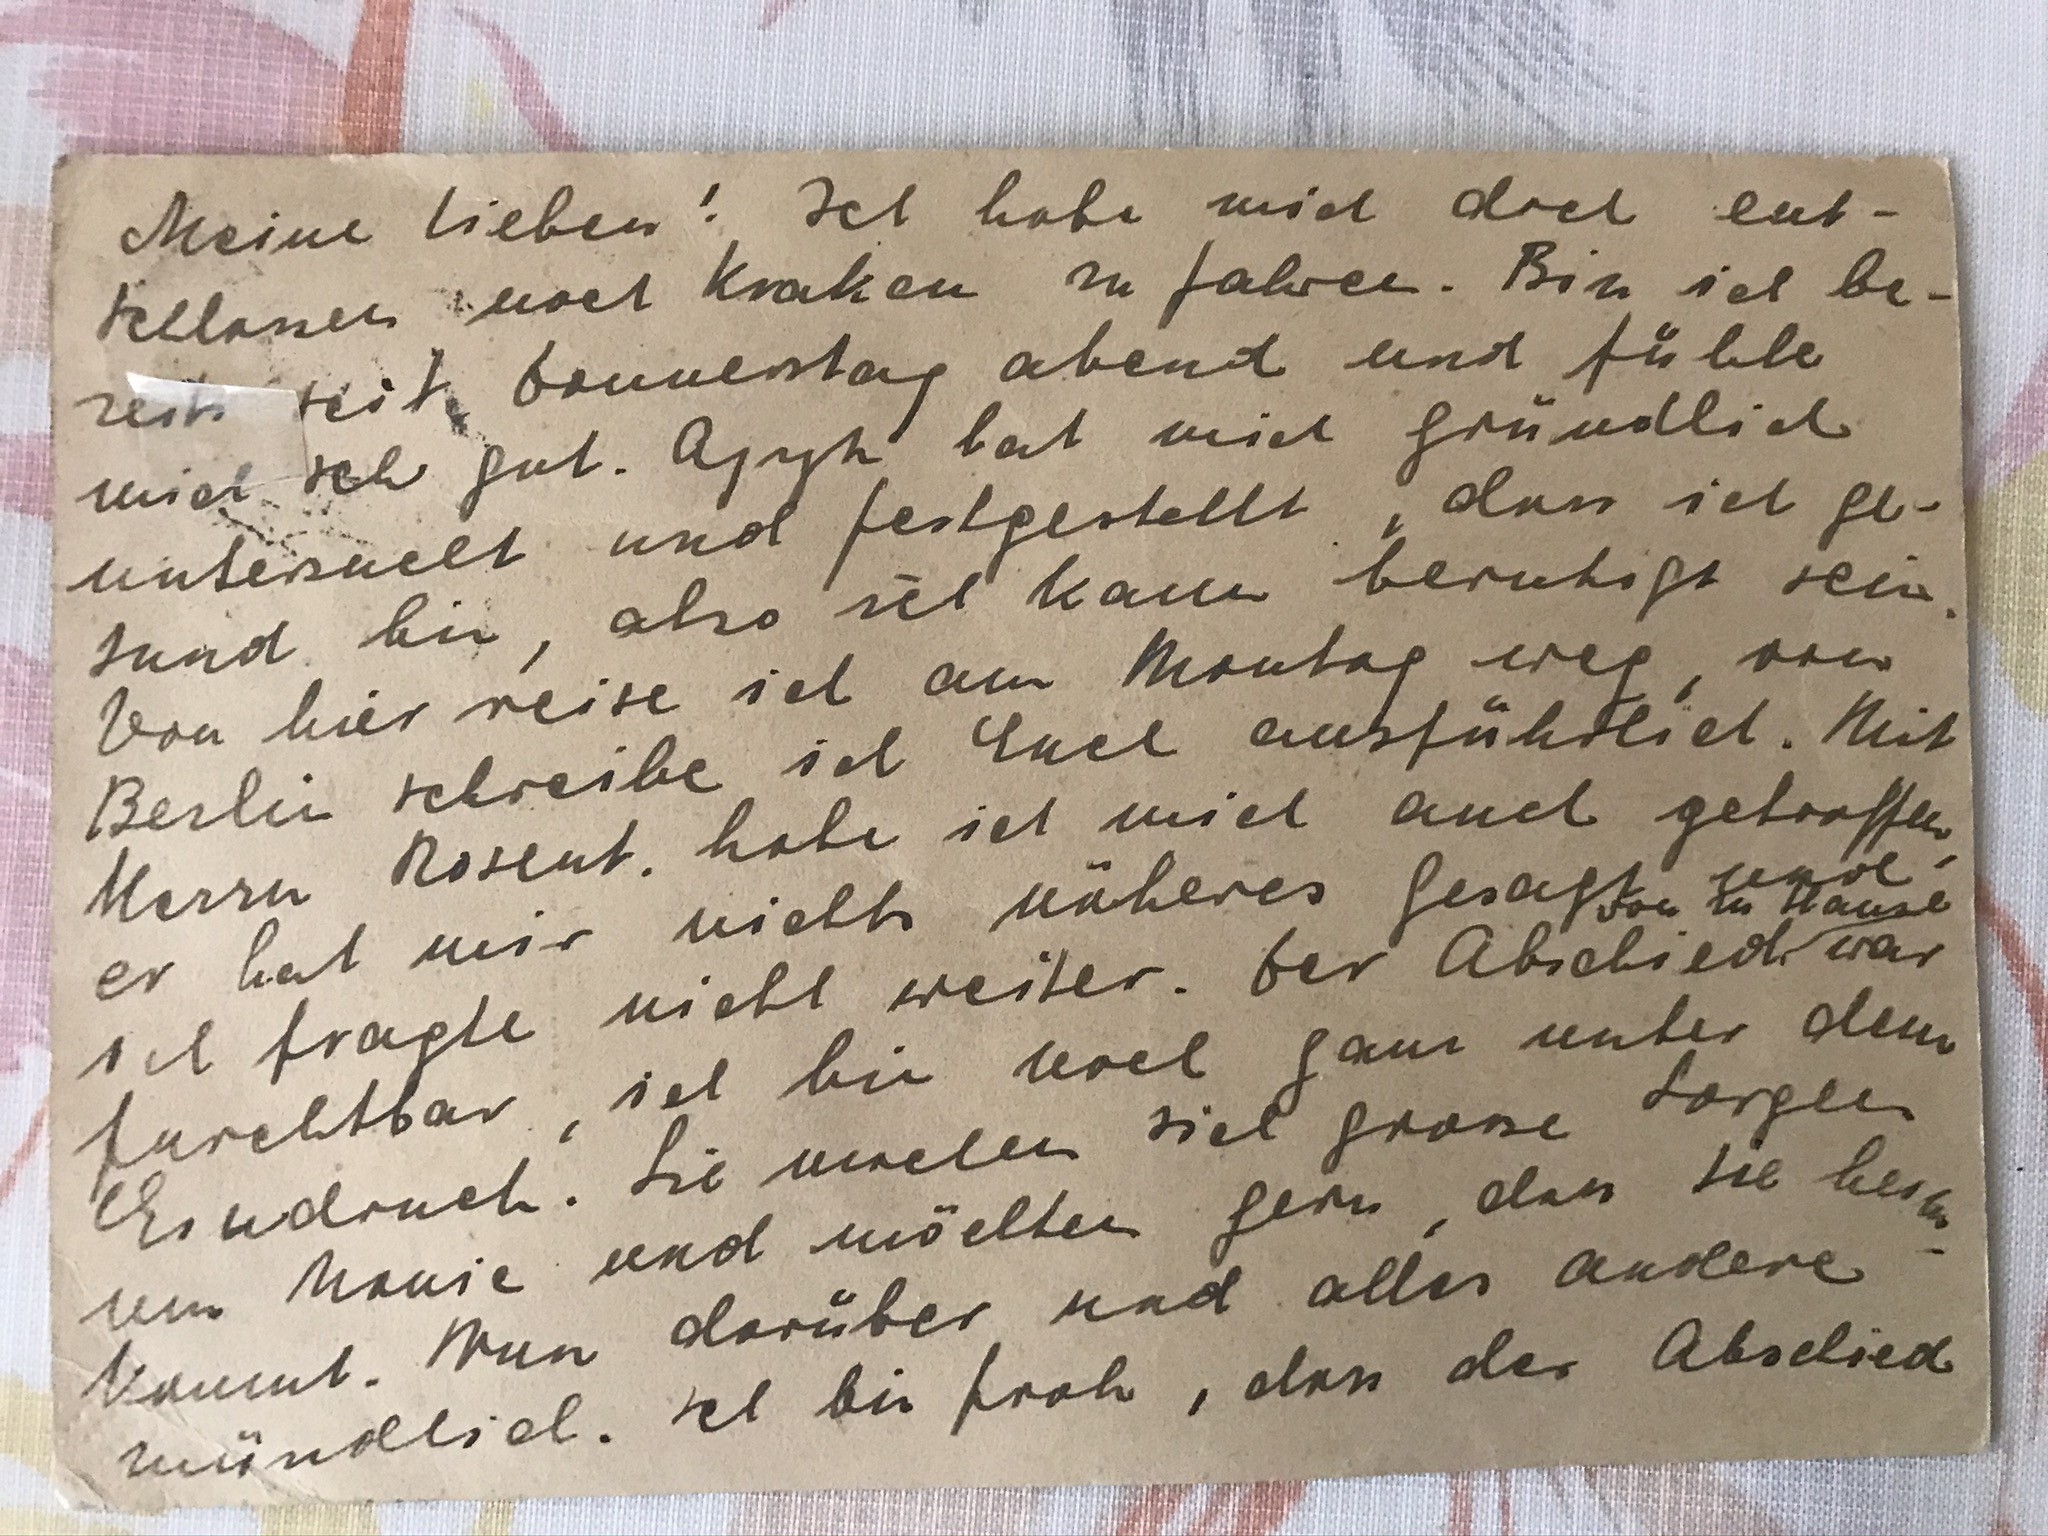 Meine Lieben! Ich habe mich doch ent-
schlossen nach Krakau zu fahren. Bin ich be-
reits seit Donnerstag abend und fühle
mich sehr gut. hat mich gründlich
untersucht und festgestellt, dass ich ge-
sund bin, also ich kann beruhigt sein.
Von hier reise ich am Montag weg, von
Berlin schreibe ich Euch ausführlich. Mit
Herrn Rosent. habe ich mich auch getroffen,
er hat mir nichts näheres gesagt und
ich fragte nicht weiter. Der Abschied von zu Hause war
furchtbar, ich bin noch ganz unter dem
Eindruck. Sie machen sich grosse Sorgen
um und möchten gern, dass sie
kommt. Nun darüber und alles andere
mündlich. Ich bin froh, dass der Abschied